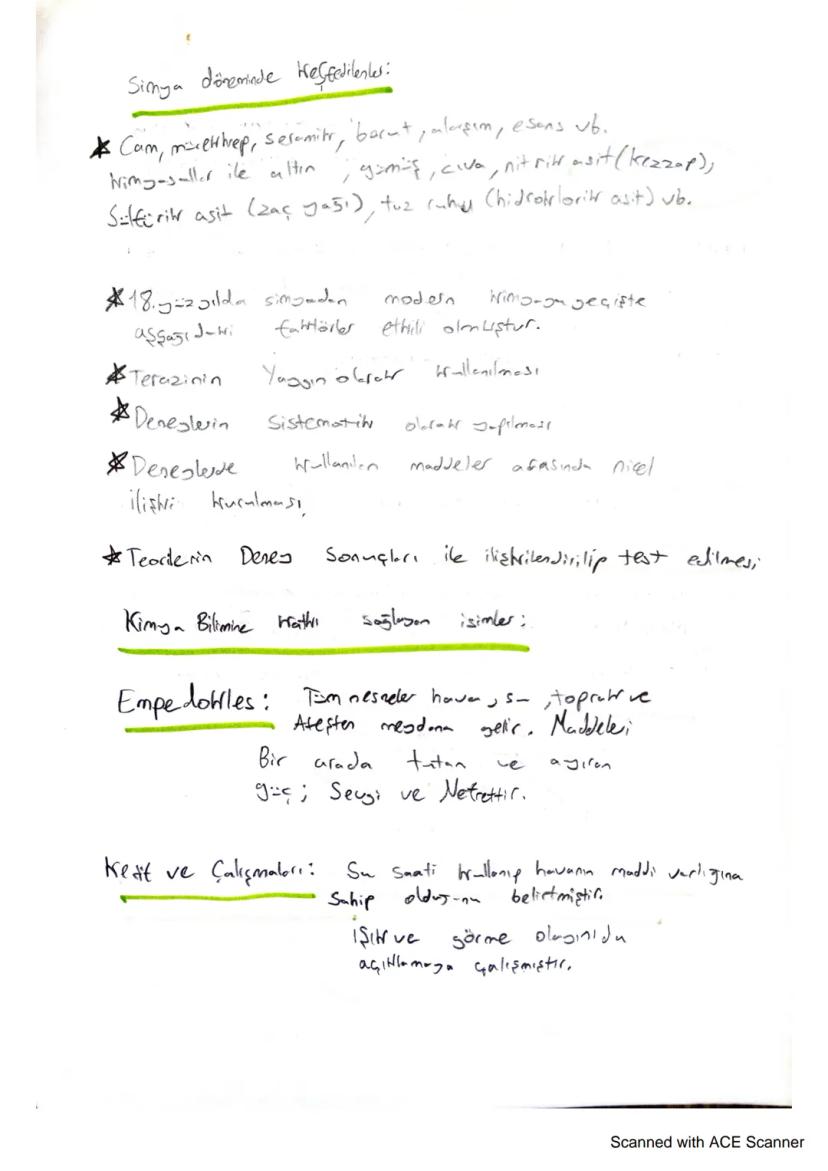 Simya döneminde Keşfedilenler:
* Cam, mürekkep, seramik, barut, alaşım, esans vb.
kimyasallar ile altın, gümüş, civa, nitrik asit (kezzap),
Sülfürik asit (zaç yağı), tuz ruhu (hidroklorik asit) vb.
* 18. yüzyılda simyadan modern kimyaya geçişte
aşşağıdaki faktörler etkili olmuştur.
* Terazinin Yaygın olarak kullanılması
* Deneylerin Sistematik olarak yapılması
* Deneylerde kullanılan maddeler arasında nicel
ilişki kurulması
* Teorilerin Deney Sonuçları ile ilişkilendirilip test edilmesi
Kimya Bilimine katkı sağlayan isimler:
Empedokles: Tüm nesneler hava, su, toprak ve
Ateşten meydana gelir. Maddeleri
Bir arada tutan ve ayıran
güç; Sevgi ve Nefrettir.
Keşif ve Çalışmaları: Su saati kullanıp havanın maddi varlığına
Sahip olduğunu belirtmiştir.
Işık ve görme olayınıda
açıklamaya çalışmıştır.
Scanned with ACE Scanner